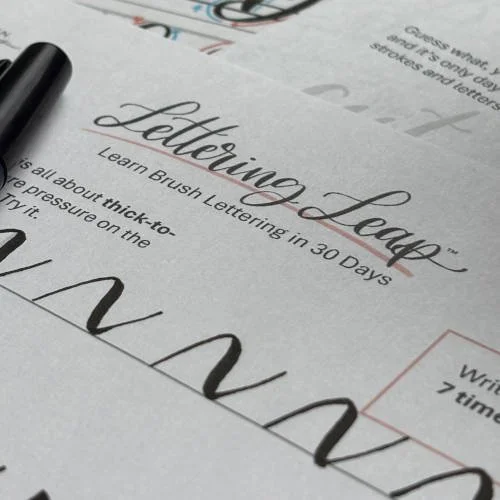 Guess what, y
and it's only day
strokes and letters
Lettering Leap™
Learn Brush Lettering in 30 Days
is all about thick-to-
re pressure on the
Try it.
Writ
7 time